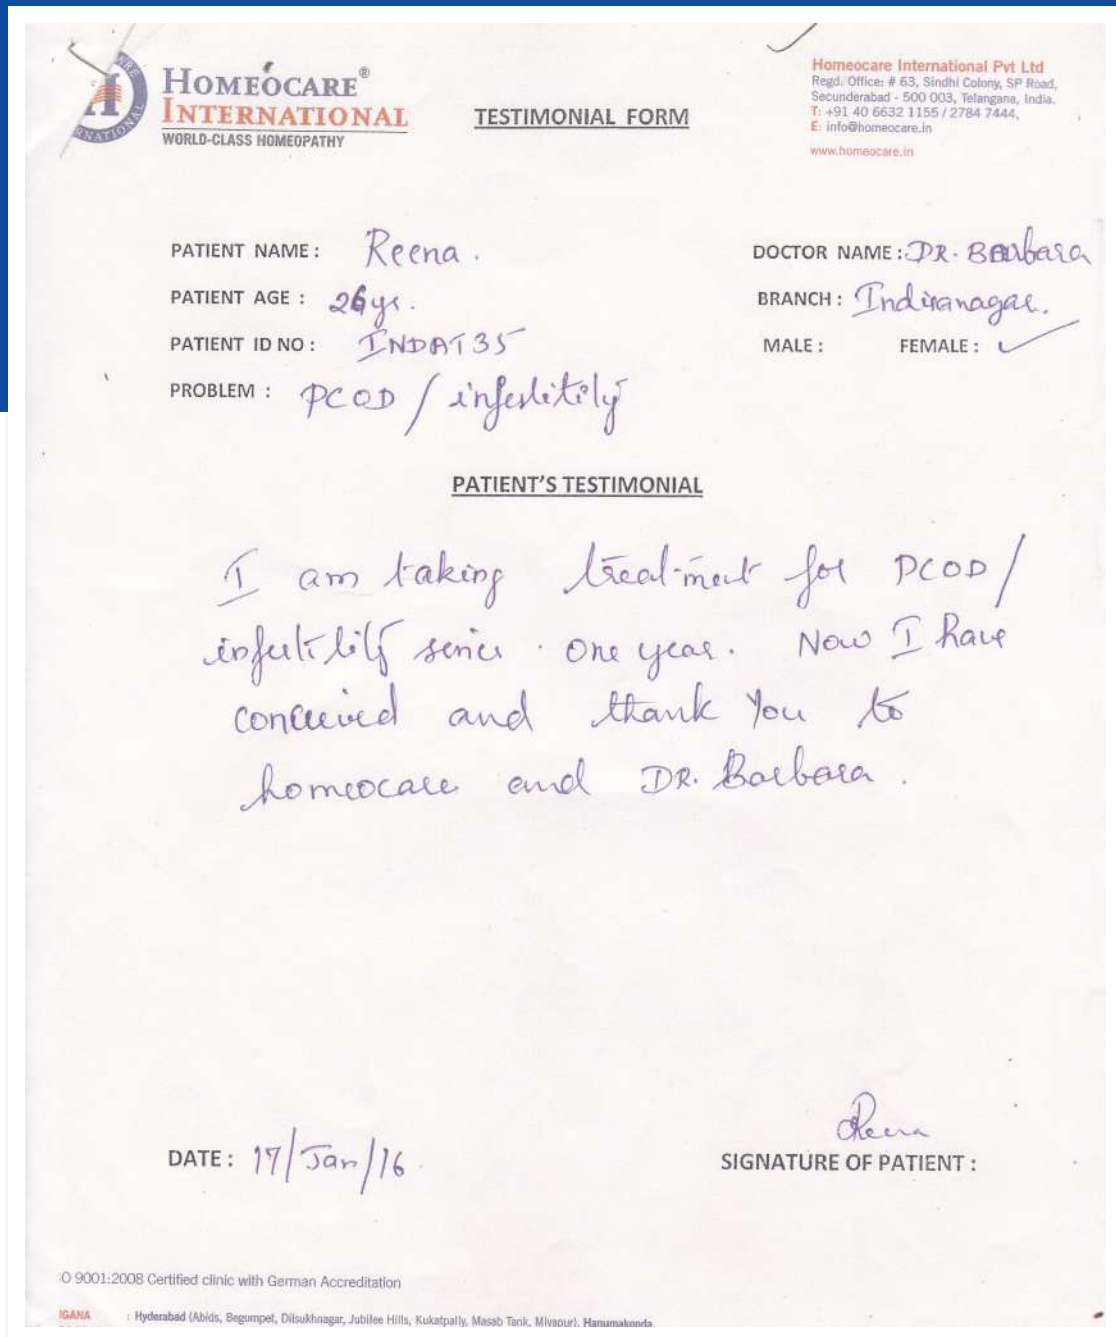 HOMEOCARE®
INTERNATIONAL
WORLD-CLASS HOMEOPATHY
TESTIMONIAL FORM
Homeocare International Pvt Ltd
Regd. Office: # 63, Sindhi Colony, SP Road,
Secunderabad - 500 003, Telangana, India.
T: +91 40 6632 1155 / 2784 7444,
E: info@homeocare.in
www.homeocare.in
PATIENT NAME : Reena.
DOCTOR NAME : DR. Barbara
PATIENT AGE : 26 yr.
BRANCH : Indiranagar.
PATIENT ID NO : INDAT35
MALE : FEMALE : ✓
PROBLEM : PCOD / infertitily
PATIENT'S TESTIMONIAL
I am taking treatment for PCOD /
infertility one year. Now I have
conceived and thank you to
homeocare and DR. Barbara.
Reena
DATE : 17/Jan/16
SIGNATURE OF PATIENT :
O 9001:2008 Certified clinic with German Accreditation
IGANA : Hyderabad (Abids, Begumpet, Dilsukhnagar, Jubilee Hills, Kukatpally, Masab Tank, Miyapur), Hanumakonda,